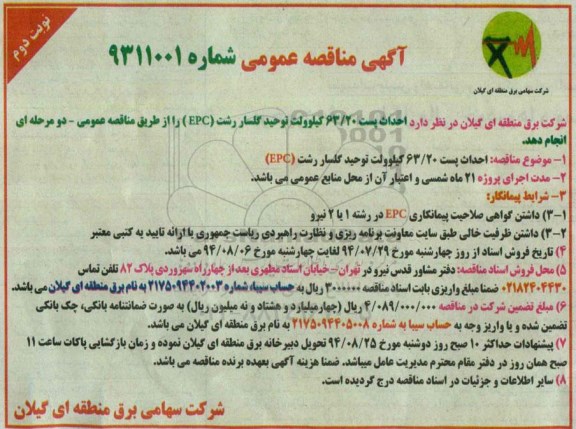 نوبت دوم
شرکت سهامی برق منطقه ای گیلان
آگهی مناقصه عمومی شماره ۹۳۱۱۰۰۱
شرکت برق منطقه ای گیلان در نظر دارد احداث پست ۶۳/۲۰ کیلوولت توحید گلسار رشت (EPC) را از طریق مناقصه عمومی - دو مرحله ای
انجام دهد.
۱- موضوع مناقصه: احداث پست ۶۳/۲۰ کیلوولت توحید گلسار رشت (EPC)
۲- مدت اجرای پروژه ۲۱ ماه شمسی و اعتبار آن از محل منابع عمومی می باشد.
۳- شرایط پیمانکار:
۳-۱) داشتن گواهی صلاحیت پیمانکاری EPC در رشته ۱ یا ۲ نیرو
۳-۲) داشتن ظرفیت خالی طبق سایت معاونت برنامه ریزی و نظارت راهبردی ریاست جمهوری با ارائه تایید به کتبی معتبر
۴) تاریخ فروش اسناد از روز چهارشنبه مورخ ۹۴/۰۷/۲۹ لغایت چهارشنبه مورخ ۹۴/۰۸/۰۶ می باشد.
۵) محل فروش اسناد مناقصه: دفتر مشاور قدس نیرو در تهران - خیابان استاد مطهری بعد از چهارراه سهروردی پلاک ۸۲ تلفن تماس
۰۲۱۸۲۴۰۴۴۳۰ ضمنا مبلغ واریزی بابت اسناد مناقصه ریال به حساب سیبا، شماره ۲۱۷۵۰۹۴۴۰۲۰۰۳ به نام برق منطقه ای گیلان می باشد.
۶) مبلغ تضمین شرکت در مناقصه ۴/۰۸۹/۰۰۰/۰۰۰ ریال (چهارمیلیارد و هشتاد و نه میلیون ریال) به صورت ضمانتنامه بانکی، چک بانکی
تضمین شده و یا واریز وجه به حساب سیبا به شماره ۲۱۷۵۰۹۴۴۰۵۰۰۸ به نام برق منطقه ای گیلان می باشد.
۷) پیشنهادات حداکثر ۱۰ صبح روز دوشنبه مورخ ۹۴/۰۸/۲۵ تحویل دبیرخانه برق منطقه ای گیلان نموده و زمان بازگشایی پاکات ساعت ۱۱
صبح همان روز در دفتر مقام محترم مدیریت عامل میباشد. ضمنا هزینه آگهی بعهده برنده مناقصه می باشد.
۸) سایر اطلاعات و جزئیات در اسناد مناقصه درج گردیده است.
شرکت سهامی برق منطقه ای گیلان